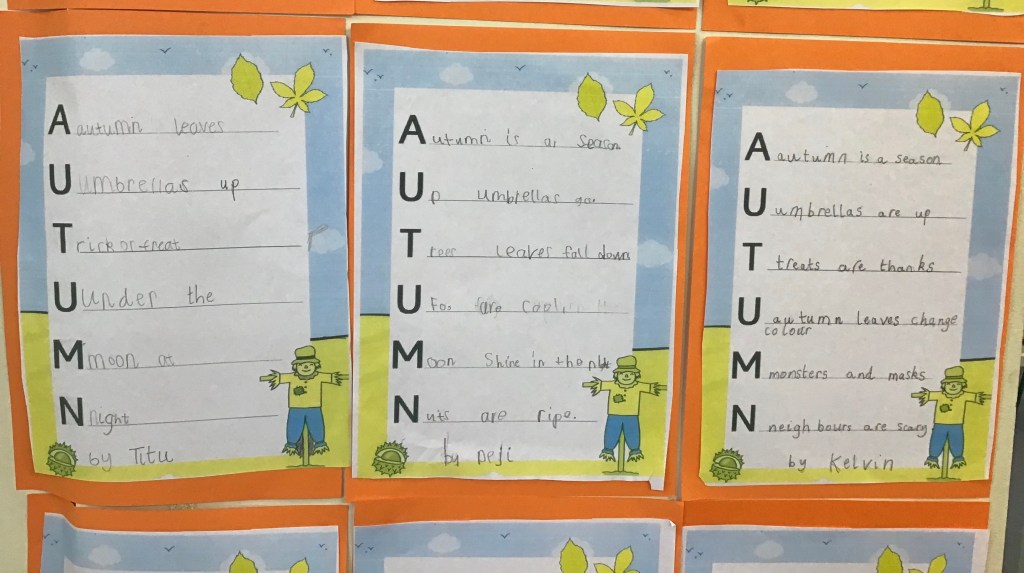 A autumn leaves
U umbrellas up
Trick or treat
U under the
M moon at
N night
by Titu
Autumn is a season
Up umbrellas goe
Trees leaves fall down
Ufos are cool
Moon Shine in the
Nuts are ripe.
by Deji
A autumn is a season
U umbrellas are up
T treats are thanks
U autumn leaves change
colour
M monsters and masks
N neighbours are scary
by Kelvin